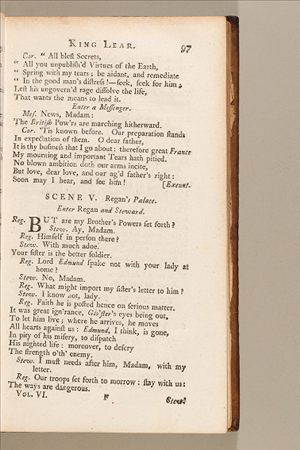 KING LEAR. 97
Cor. " All blest Secrets,
" All you unpublish'd Virtues of the Earth,
" Spring with my tears; be aidant, and remediate
" In the good man's distress!—seek, seek for him;
Lest his ungovern'd rage dissolve the life,
That wants the means to lead it.
Enter a Messenger.
Mes. News, Madam:
The British Pow'rs are marching hitherward.
Cor. 'Tis known before. Our preparation stands
In expectation of them. O dear father,
It is thy business that I go about: therefore great France
My mourning and important Tears hath pitied.
No blown ambition doth our arms incite,
But love, dear love, and our ag'd father's right:
Soon may I hear, and see him! [Exeunt.
SCENE V. Regan's Palace.
Enter Regan and Steward.
Reg. BUT are my Brother's Powers set forth?
Stew. Ay, Madam.
Reg. Himself in person there?
Stew. With much adoe.
Your sister is the better soldier.
Reg. Lord Edmund spake not with your lady at
home?
Stew. No, Madam.
Reg. What might import my sister's letter to him?
Stew. I know not, lady.
Reg. Faith he is posted hence on serious matter.
It was great ign'rance, Glo'ster's eyes being out,
To let him live; where he arrives, he moves
All hearts against us: Edmund, I think, is gone,
In pity of his misery, to dispatch
His nighted life: moreover, to descry
The strength o'th' enemy.
Stew. I must needs after him, Madam, with my
letter.
Reg. Our troops set forth to morrow: stay with us:
The ways are dangerous.
VOL. VI. F Stew.